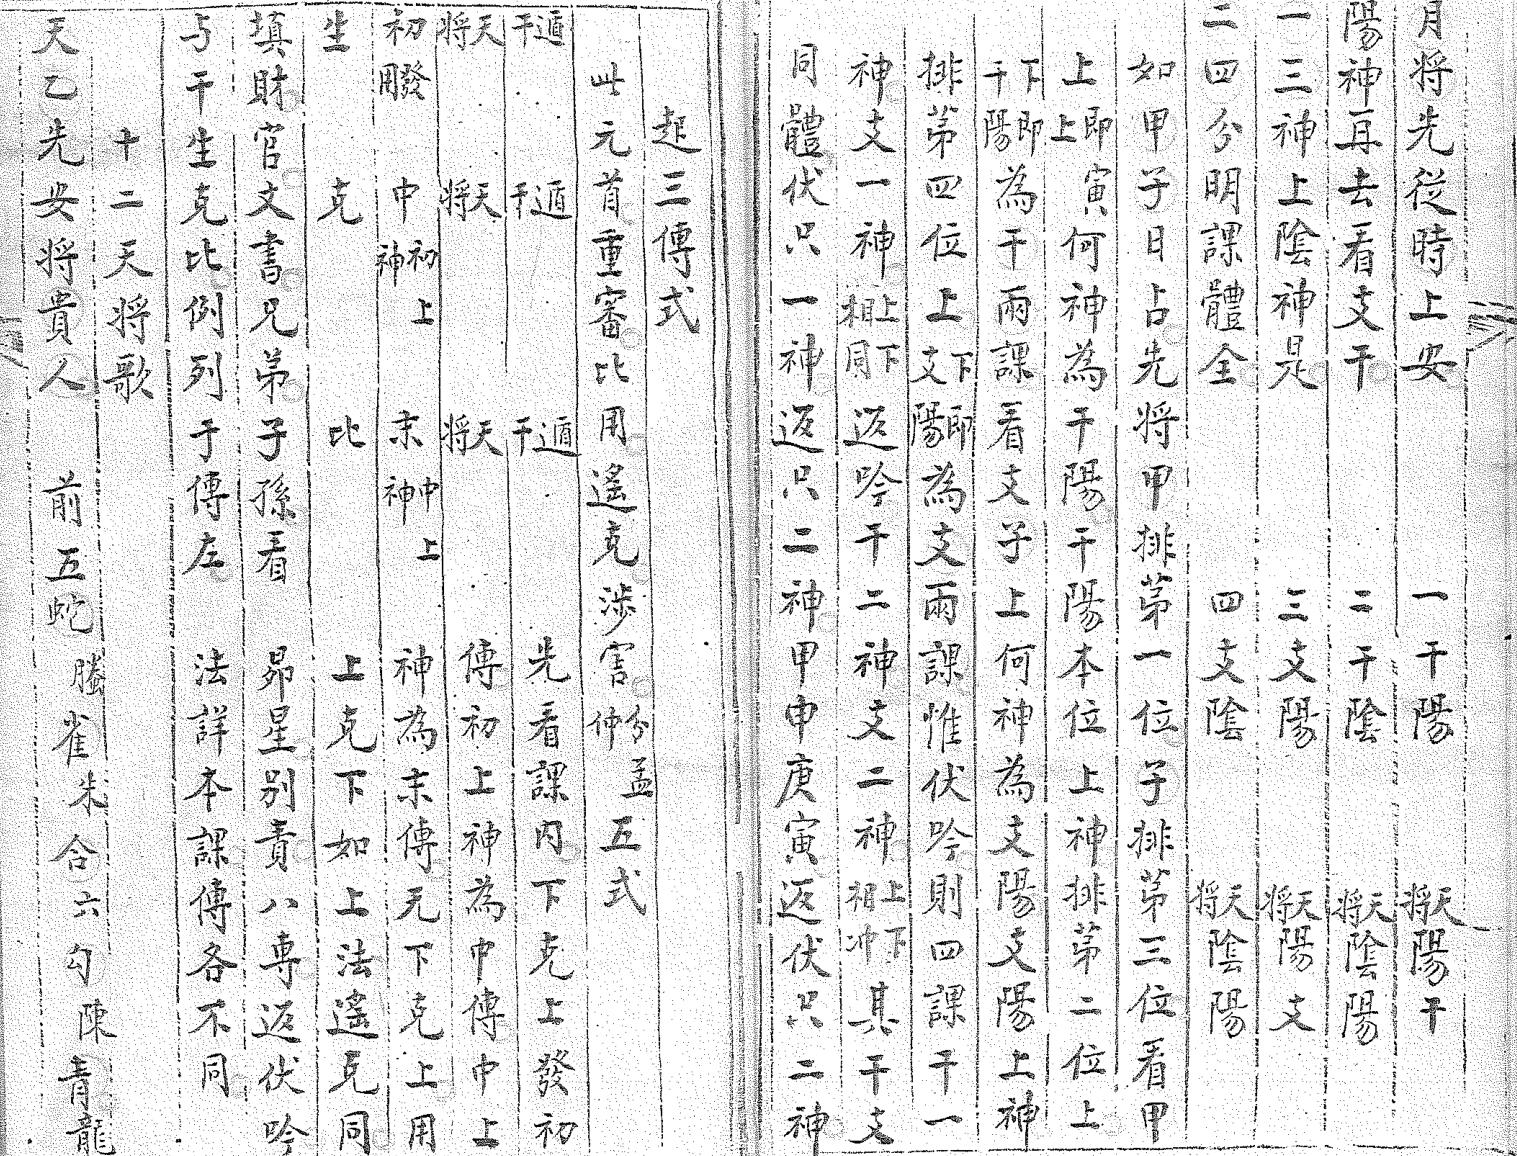 月将先従時上安　一干陽　天将陽干
陽神再去看支干　二干陰　天将陰陽
一三神上陰神是　三支陽　天将陽支
二四分明課體全　四支陰　天将陰陽
如甲子日占先将甲排第一位子排第三位看甲
上即上寅何神為干陽干陽本位上神排第二位上
下干即陽為干兩課看支子上何神為支陽支陽上神
排第四位上下支即陽為支兩課惟伏吟則四課干一
神支一神上下相同返吟干二神支二神上下相冲其干支
同體伏只一神返只二神甲申庚寅返伏只二神
起三傳式
此元首重審比用遙克涉害分仲孟五式
遁干　遁干　遁干　先看課内下克上發初
天将　天将　天将　傳初上神為中傳中上
初發用　中初神上　末中神上　神為末傳无下克上用
生　克　比　上克下如上法遙克同
填財官文書兄弟子孫看　昴星别責八専返伏吟
与干生克比例列于傳左　法詳本課傳各不同
十二天将歌
天乙先安将貴人　前五蛇螣雀朱合六勾陳青龍